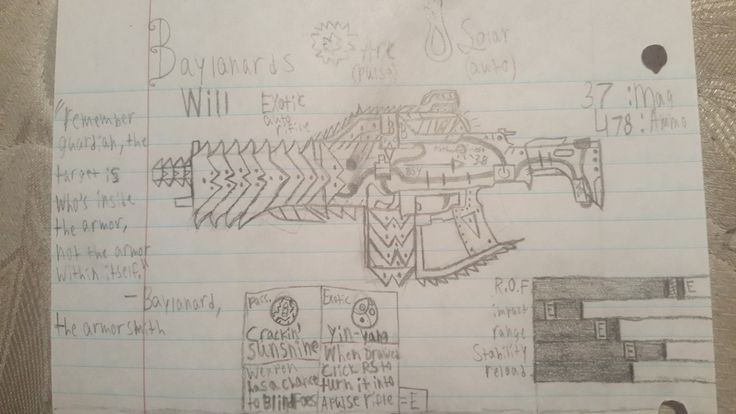 Baylanards
Will
Exotic
auto
rifile
Arc
(pulse)
Solar
(auto)
37 :Mag
478 :Ammo
"remember
guardian, the
target is
who's inside
the armor,
not the armor
within itself."
— Baylanard,
the armorsmith
B
38
Pass.
Crackin'
Sunshine
Weapon
has a chance
to Blind foes
Exotic
Yin-yang
When Drawed
Click RS to
turn it into
A Pulse rifle
=E
R.O.F
impact
range
Stability
reload
E
E
E
E